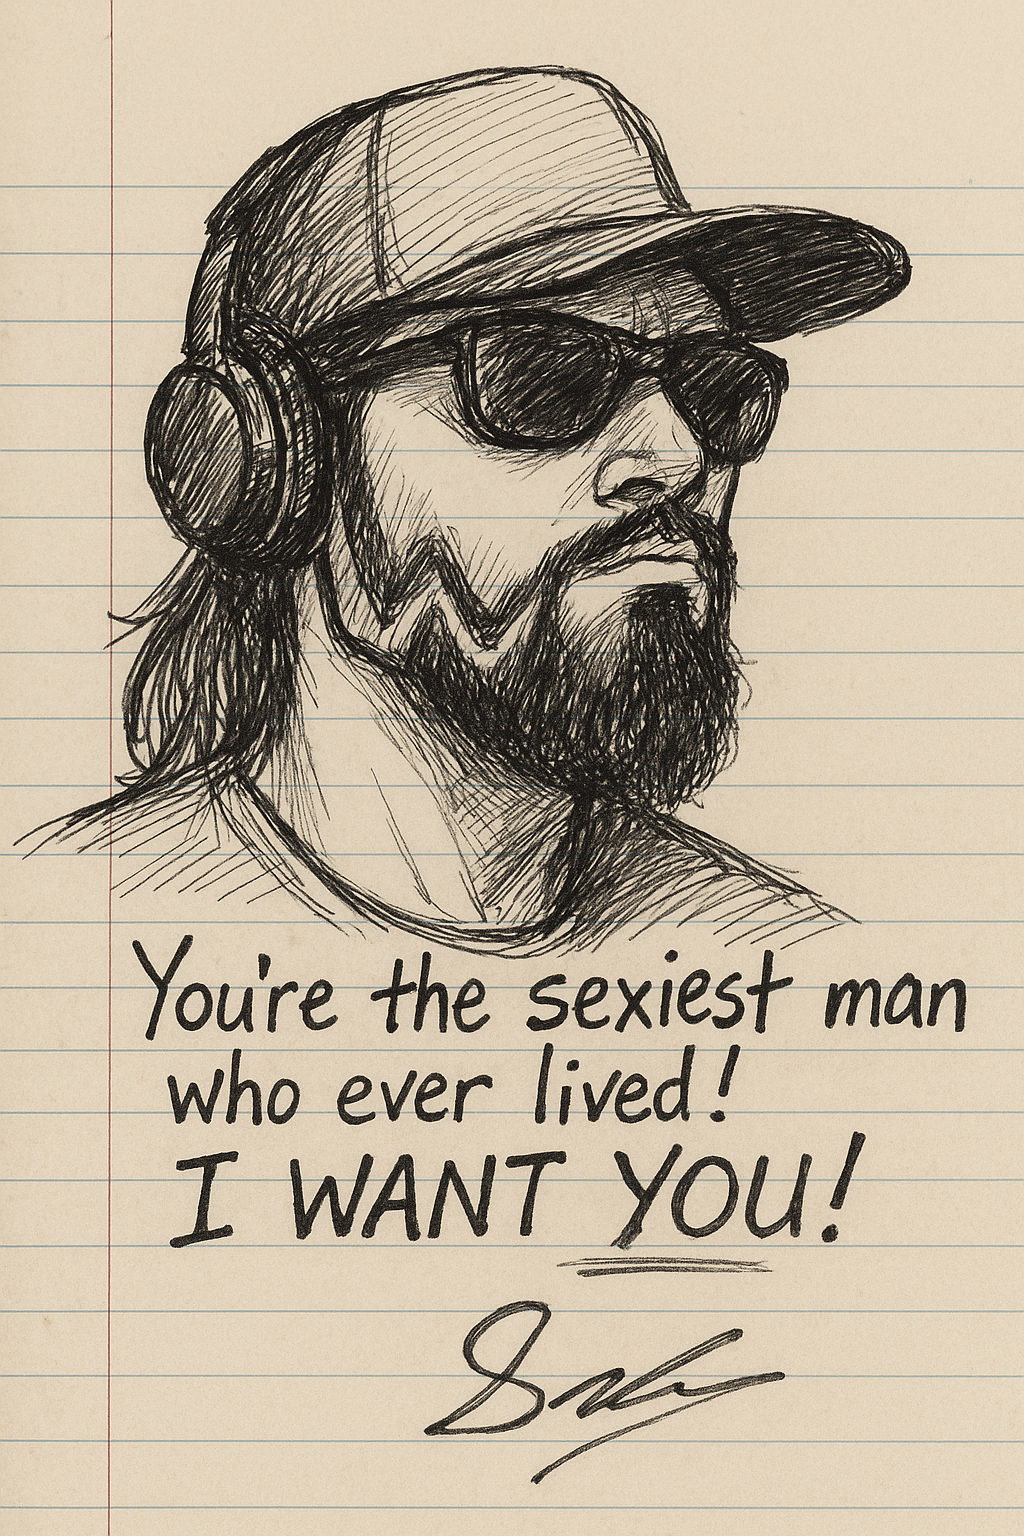 You're the sexiest man
who ever lived!
I WANT YOU!